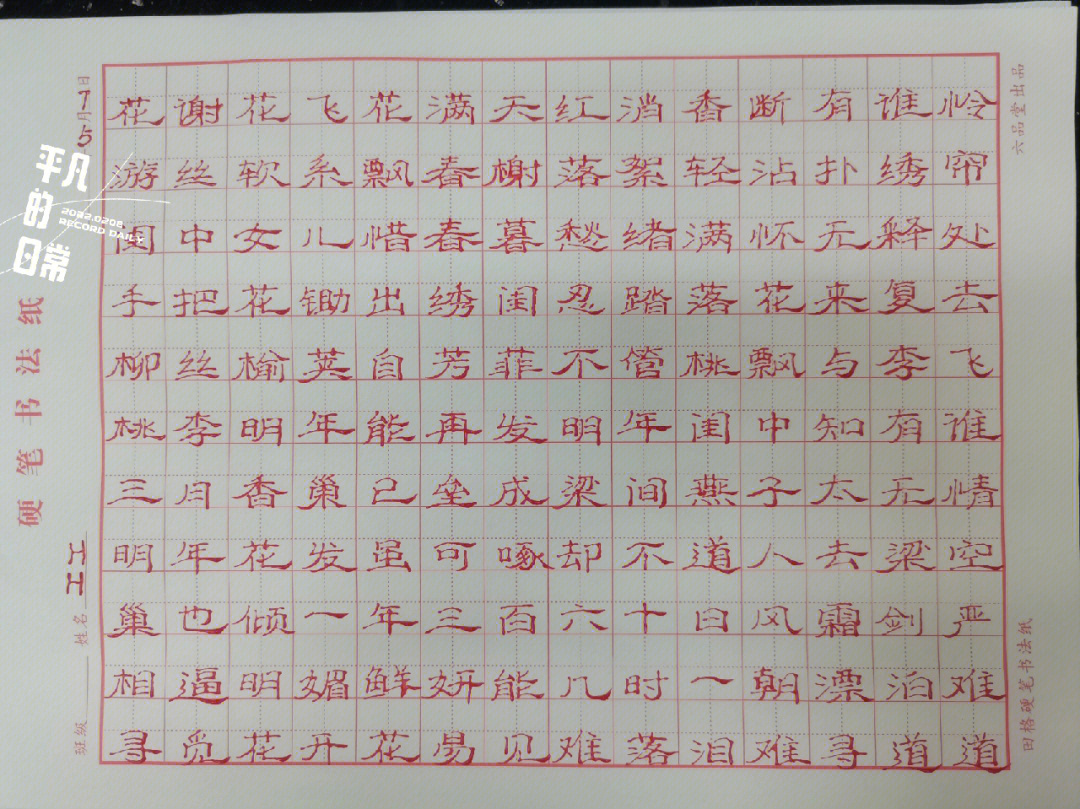 花谢花飞花满天红消香断有谁怜
游丝软系飘春榭落絮轻沾扑绣帘
闺中女儿惜春暮愁绪满怀无释处
手把花锄出绣闺忍踏落花来复去
柳丝榆荚自芳菲不管桃飘与李飞
桃李明年能再发明年闺中知有谁
三月香巢已垒成梁间燕子太无情
明年花发虽可啄却不道人去梁空
巢也倾一年三百六十日风霜剑严
相逼明媚鲜妍能几时一朝漂泊难
寻觅花开花易见难落泪难寻道道
7月5日
平凡
的
日常
2022.0208
RECORD DAILY
硬笔书法纸
姓名 工工
班级
六品堂出品
田格硬笔书法纸